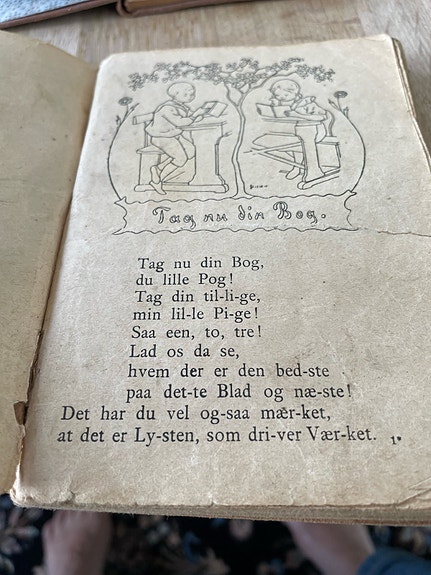 Tag nu din Bog.
Tag nu din Bog,
du lille Pog!
Tag din til-li-ge,
min lil-le Pi-ge!
Saa een, to, tre!
Lad os da se,
hvem der er den bed-ste
paa det-te Blad og næ-ste!
Det har du vel og-saa mær-ket,
at det er Ly-sten, som dri-ver Vær-ket. 1.